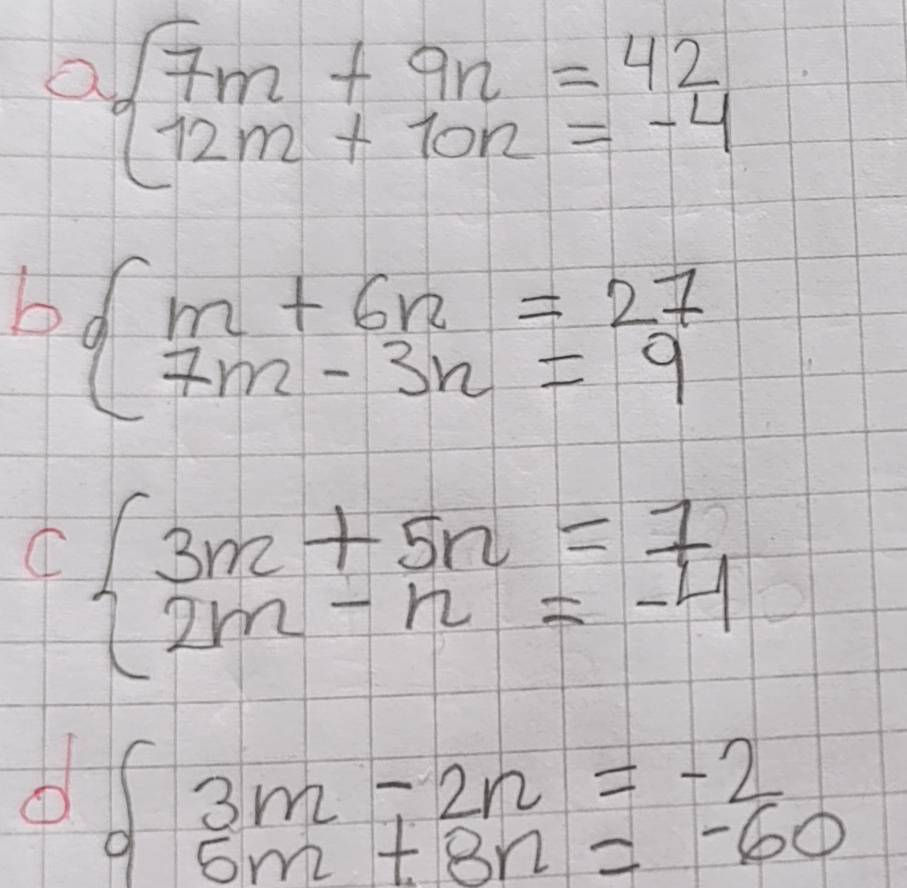 a { 7m + 9n = 42
12m + 10n = -4
b { m + 6n = 27
7m - 3n = 9
c { 3m + 5n = 7
2m - n = -4
d { 3m - 2n = -2
5m + 8n = -60